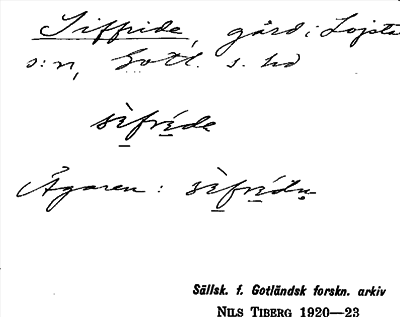 Siffride, gård i Lojsta
s:n, Gotl. s. hd
sèfríde
Ägaren: sèfrídn
Sällsk. f. Gotländsk forskn. arkiv
NILS TIBERG 1920—23